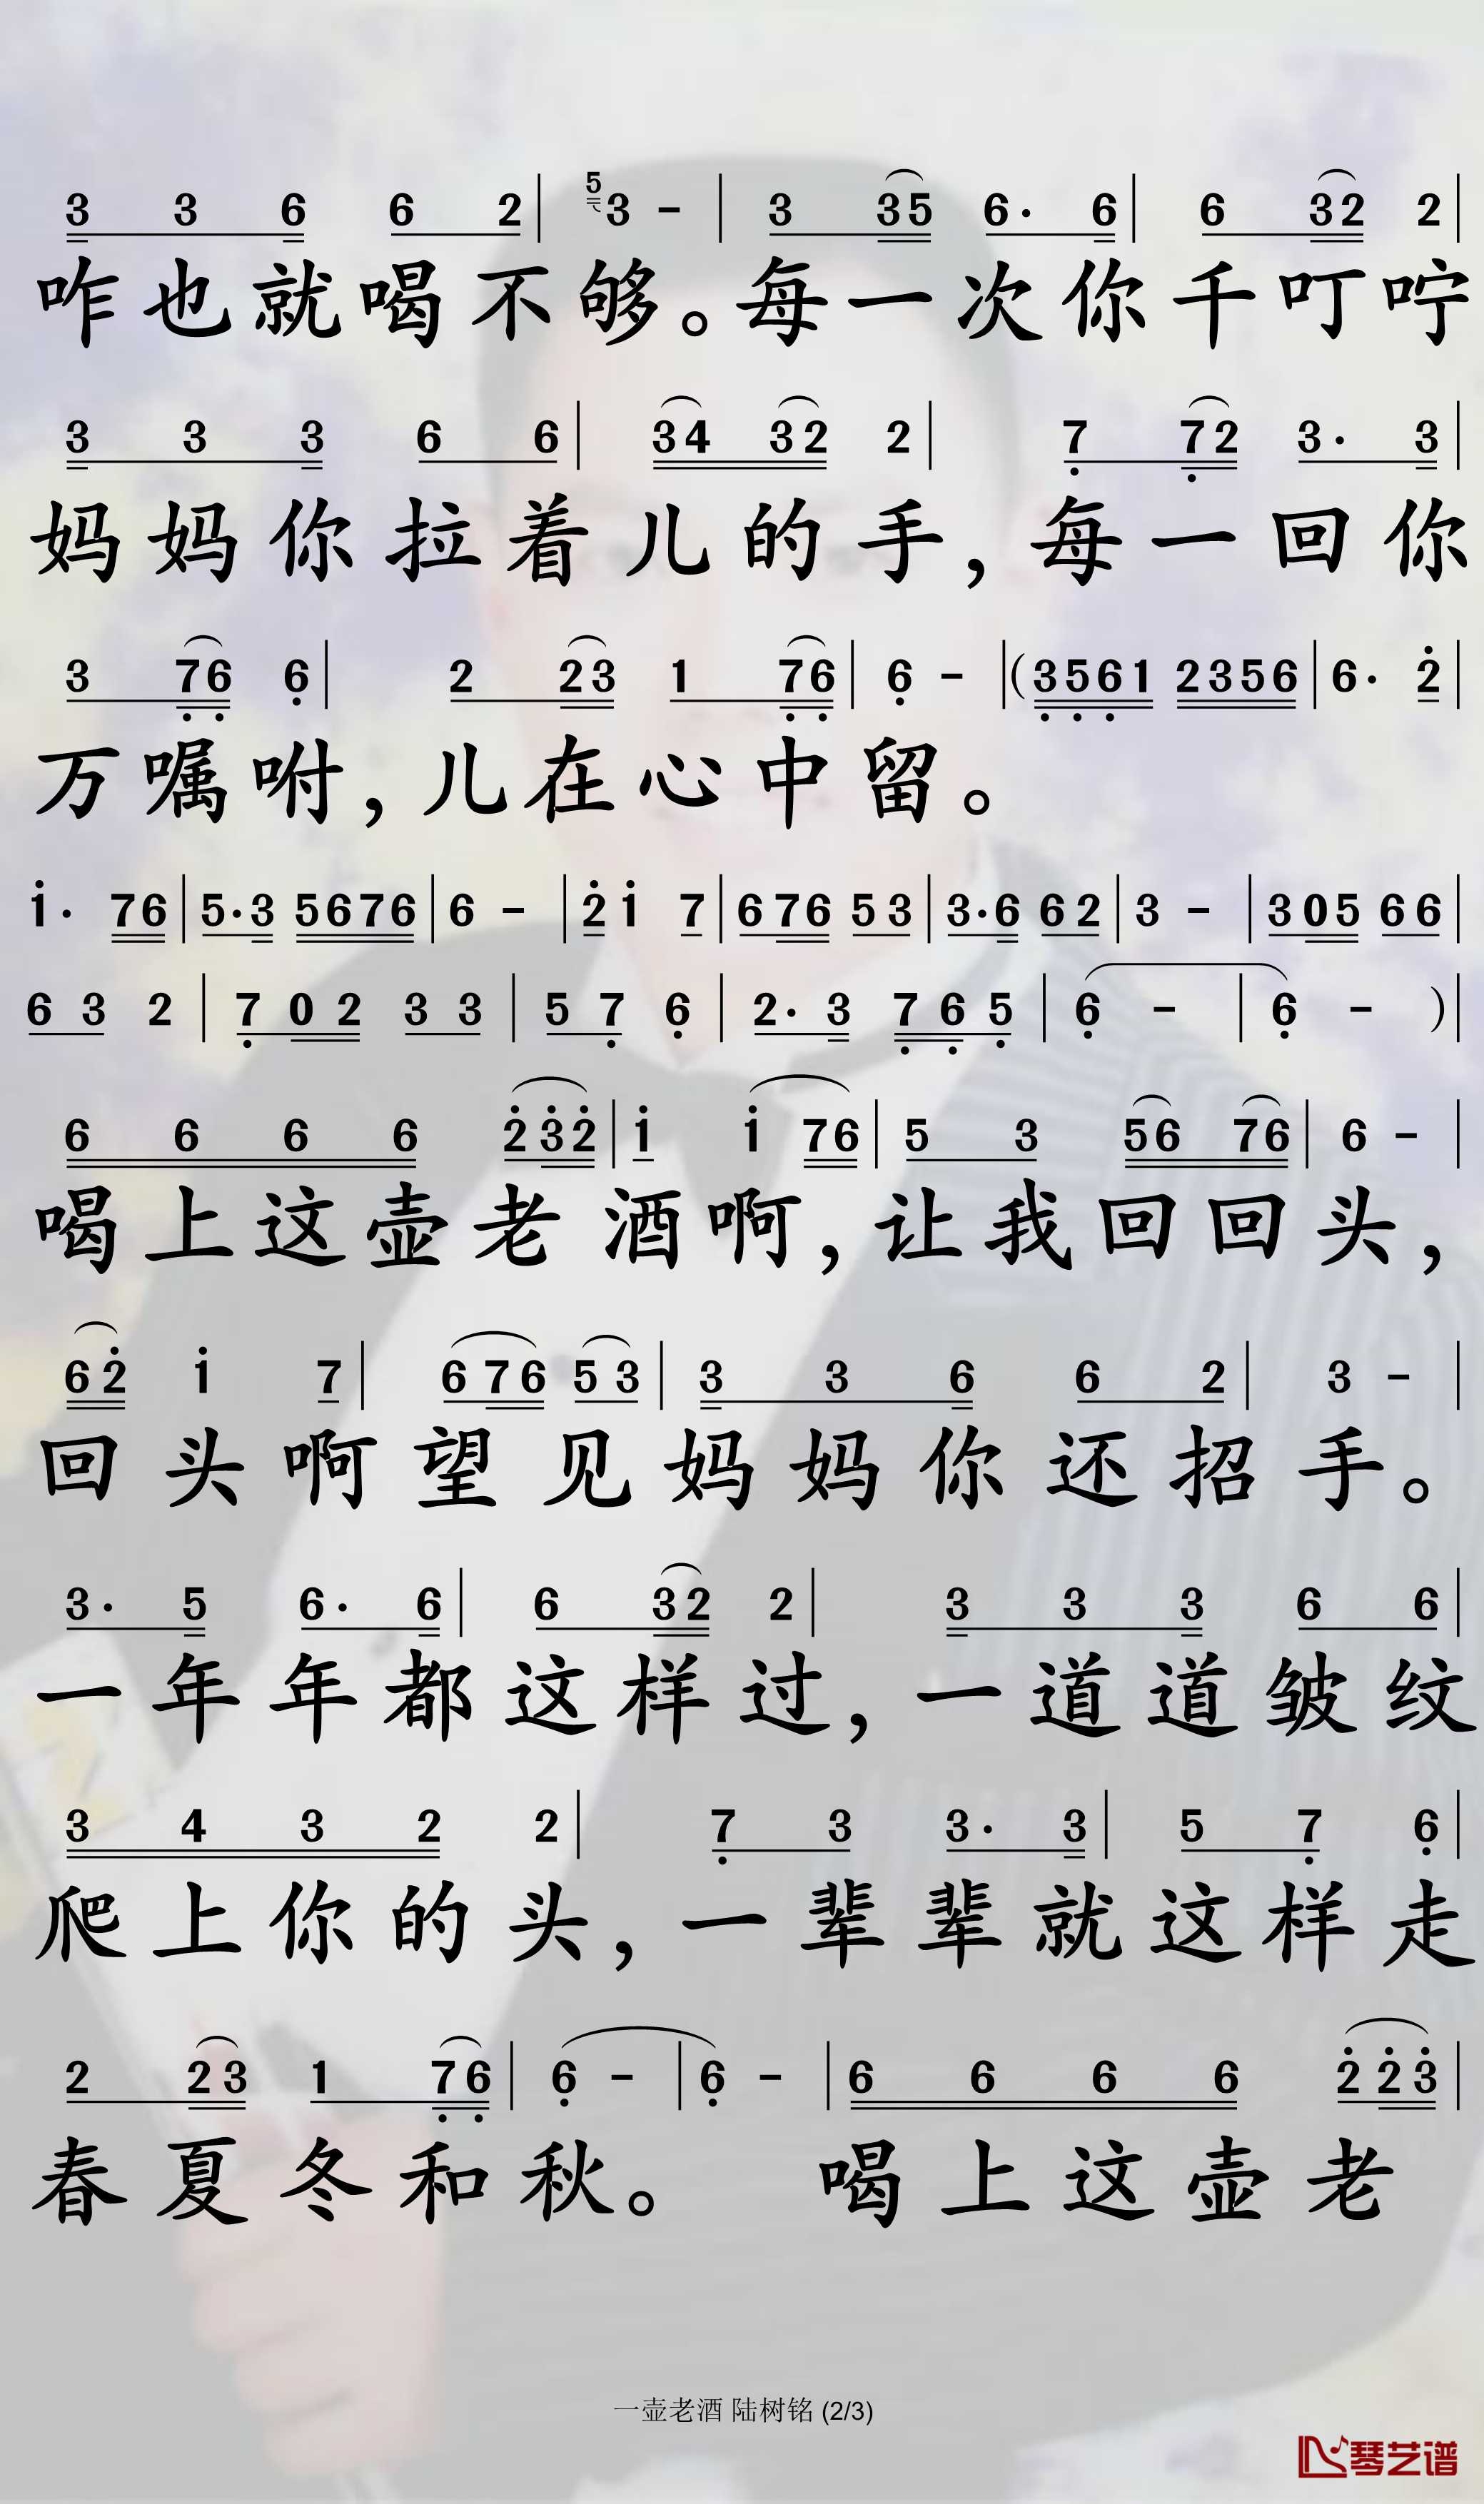 3 3 6 6 2 | 5 3 - | 3 35 6· 6 | 6 32 2 |
咋也就喝不够。每一次你千叮咛
3 3 3 6 6 | 34 32 2 | 7 72 3· 3 |
妈妈你拉着儿的手,每一回你
3 76 6 | 2 23 1 76 | 6 - | (3561 2356 | 6· 2 |
万嘱咐,儿在心中留。
1· 76 | 5·3 5676 | 6 - | 21 7 | 676 53 | 3·6 62 | 3 - | 305 66 |
63 2 | 702 33 | 57 6 | 2·3 765 | 6 - | 6 - ) |
6 6 6 6 232 | 1 1 76 | 5 3 56 76 | 6 - |
喝上这壶老酒啊,让我回回头,
62 1 7 | 676 53 | 3 3 6 6 2 | 3 - |
回头啊望见妈妈你还招手。
3· 5 6· 6 | 6 32 2 | 3 3 3 6 6 |
一年年都这样过,一道道皱纹
3 4 3 2 2 | 7 3 3· 3 | 5 7 6 |
爬上你的头,一辈辈就这样走
2 23 1 76 | 6 - | 6 - | 6 6 6 6 223 |
春夏冬和秋。 喝上这壶老
一壶老酒 陆树铭 (2/3)
琴艺谱